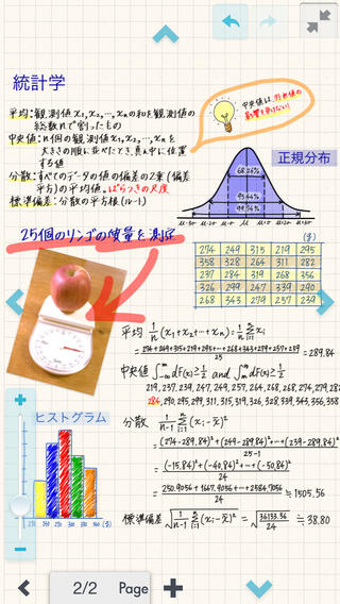 統計学
平均:観測値x1,x2,…,xnの和を観測値の
総数nで割ったもの
中央値:n個の観測値x1,x2,…,xnを
大きさの順に並べたとき,真ん中に位置
する値
分散:すべてのデータの値の偏差の2乗(偏差
平方)の平均値。ばらつきの尺度
標準偏差:分散の平方根(n-1)
中央値は,外れ値の
影響を受けない!
正規分布
68.26%
95.44%
99.74%
25個のリンゴの質量を測定
(g)
274 249 315 219 295
358 328 264 311 282
237 284 319 268 356
326 299 247 339 290
268 343 279 257 239
平均 1/n (x1+x2+…+xn)=1/n Σ xi
= 274+249+315+219+295+…+268+343+279+257+239 / 25 = 289.84
中央値 ∫ dF(x)≥1/2 and ∫ dF(x)≥1/2
219, 237, 239, 247, 249, 257, 264, 268, 268, 274, 279, 282
284, 290, 295, 299, 311, 315, 319, 326, 328, 339, 343, 356, 358
分散 1/n-1 Σ (xi-x̄)²
= (274-289.84)²+(249-289.84)²+…+(239-289.84)² / 25-1
= (-15.84)²+(-40.84)²+…+(-50.84)² / 24
= 250.9056+1667.9056+…+2584.7056 / 24 ≒ 1505.56
標準偏差 √1/n-1 Σ (xi-x̄)² = √36133.36/24 ≒ 38.80
ヒストグラム
2/2 Page